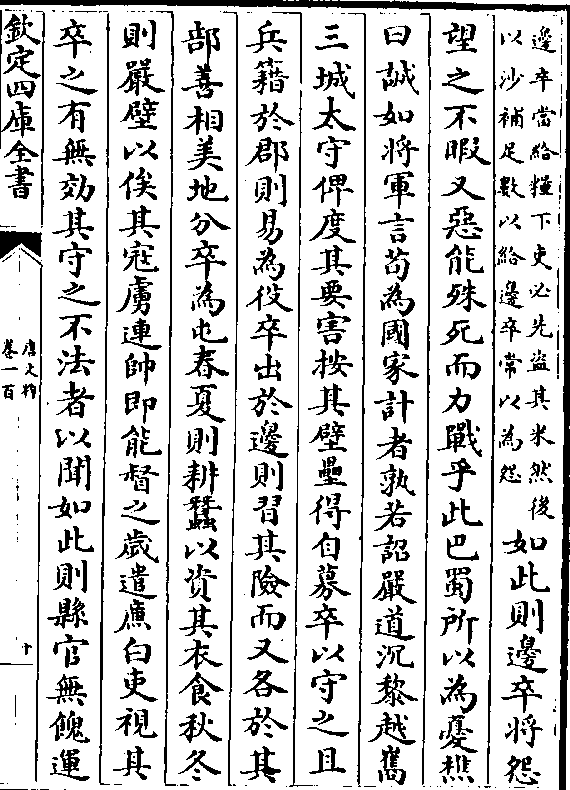 邊卒當給糧下吏必先盜其米然後
以沙補足數以給邊卒常以為怨
如此則邊卒將怨
望之不暇又惡能殊死而力戰乎此巴蜀所以為憂樵
曰誠如將軍言苟為國家計者孰若詔嚴道沉黎越嶲
三城太守俾度其要害按其壁壘得自募卒以守之且
兵籍於郡則易為役卒出於邊則習其險而又各於其
部善相美地分卒為屯春夏則耕蠶以資其衣食秋冬
則嚴壁以俟其寇虜連帥即能督之歲遣廉白吏視其
卒之有無効其守之不法者以聞如此則縣官無餽運
欽定四庫全書
唐文粹
卷一百
十